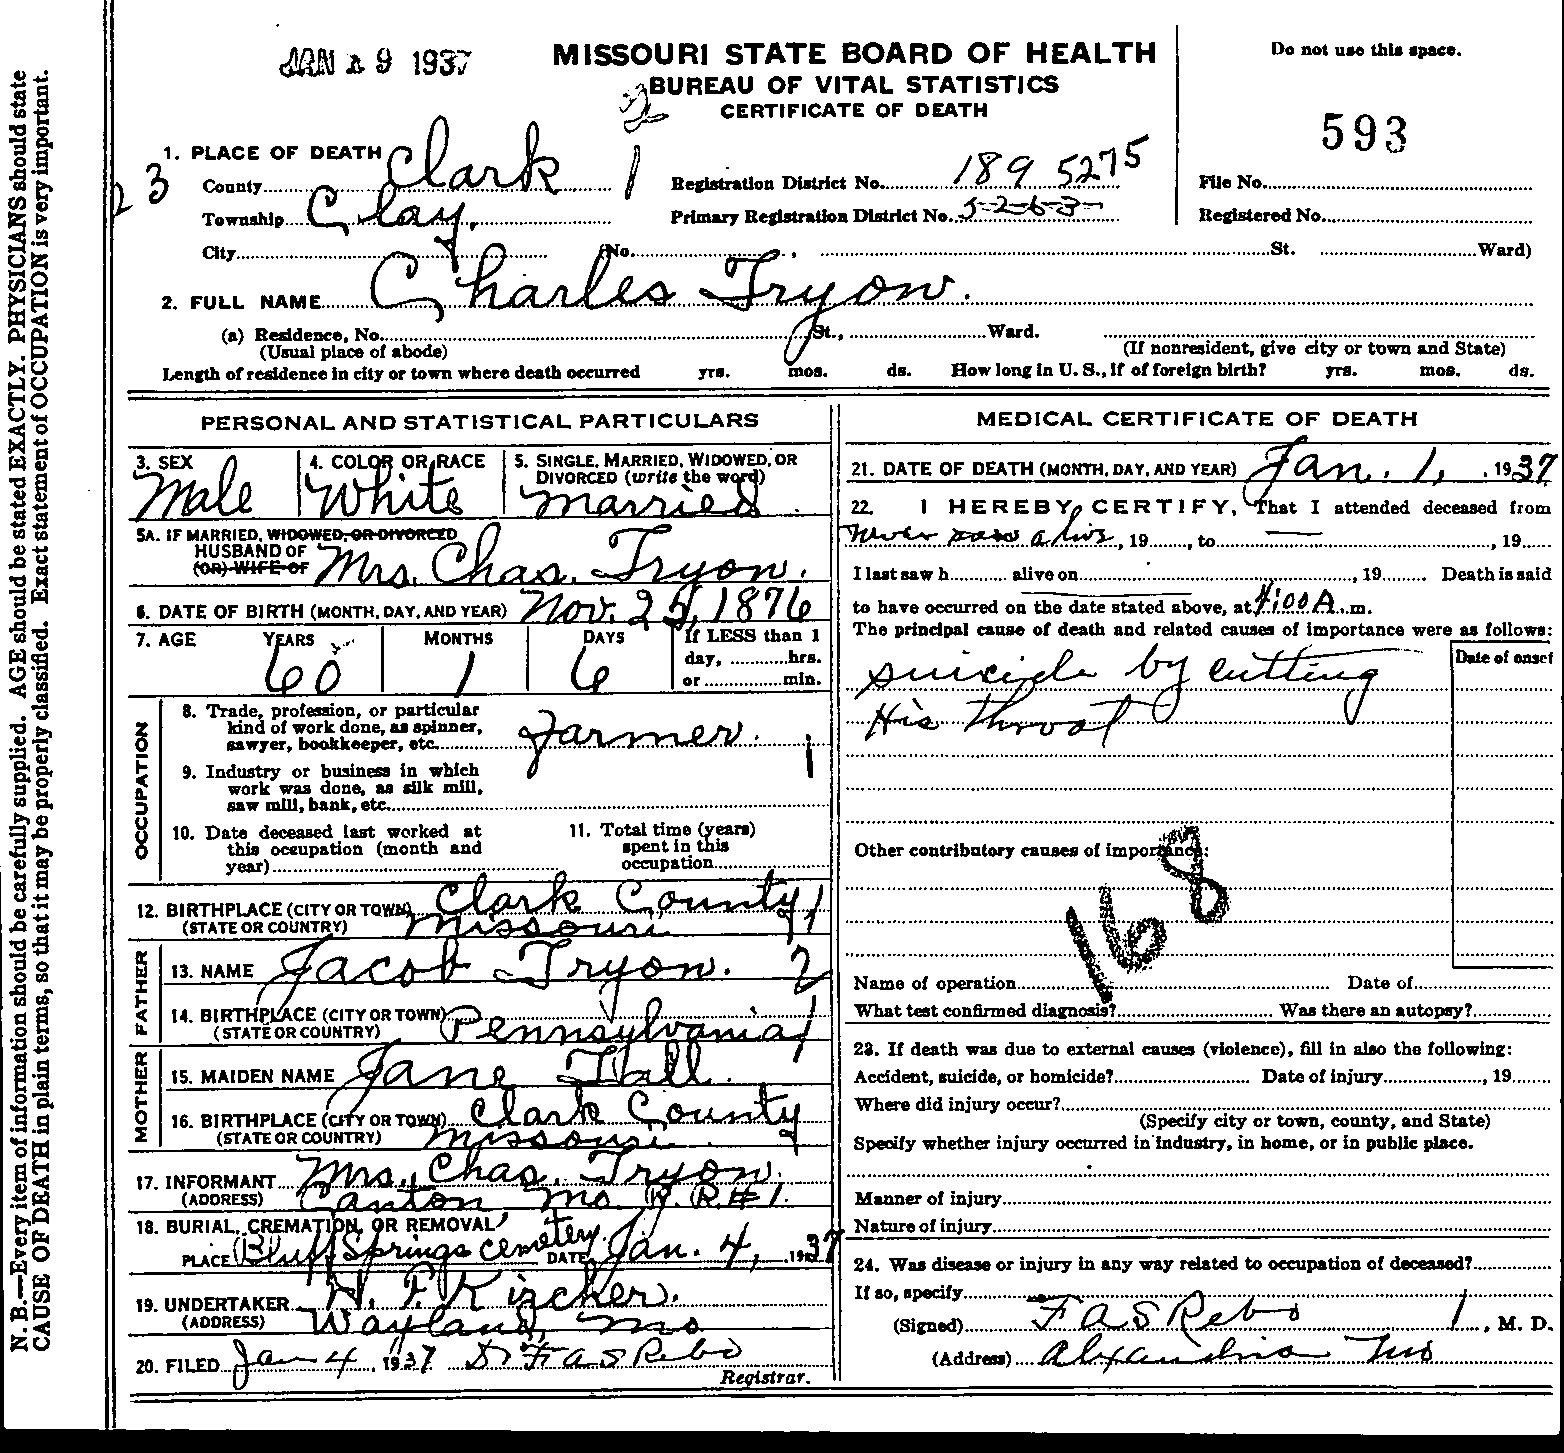 N. B.—Every item of information should be carefully supplied. AGE should be stated EXACTLY. PHYSICIANS should state
CAUSE OF DEATH in plain terms, so that it may be properly classified. Exact statement of OCCUPATION is very important.
JAN 19 1937
MISSOURI STATE BOARD OF HEALTH
BUREAU OF VITAL STATISTICS
CERTIFICATE OF DEATH
Do not use this space.
593
1. PLACE OF DEATH
County Clark 1
Registration District No. 189 5275
File No.
23
Township Clay,
Primary Registration District No. 5263
Registered No.
City (No. St. Ward)
2. FULL NAME Charles Tryon.
(a) Residence, No. St., Ward.
(Usual place of abode) (If nonresident, give city or town and State)
Length of residence in city or town where death occurred yrs. mos. ds. How long in U. S., if of foreign birth? yrs. mos. ds.
PERSONAL AND STATISTICAL PARTICULARS
3. SEX Male
4. COLOR OR RACE White
5. SINGLE, MARRIED, WIDOWED, OR
DIVORCED (write the word)
married
5A. IF MARRIED, WIDOWED, OR DIVORCED
HUSBAND OF
(OR) WIFE OF Mrs. Chas. Tryon.
6. DATE OF BIRTH (MONTH, DAY, AND YEAR) Nov. 25, 1876
7. AGE YEARS MONTHS DAYS If LESS than 1
day, hrs.
or min.
60 1 6
OCCUPATION
8. Trade, profession, or particular
kind of work done, as spinner,
sawyer, bookkeeper, etc. Farmer. 1
9. Industry or business in which
work was done, as silk mill,
saw mill, bank, etc.
10. Date deceased last worked at
this occupation (month and
year)
11. Total time (years)
spent in this
occupation
12. BIRTHPLACE (CITY OR TOWN) Clark County 1
(STATE OR COUNTRY) Missouri
FATHER
13. NAME Jacob Tryon. 2
14. BIRTHPLACE (CITY OR TOWN)
(STATE OR COUNTRY) Pennsylvania 1
MOTHER
15. MAIDEN NAME Jane Hall.
16. BIRTHPLACE (CITY OR TOWN) Clark County
(STATE OR COUNTRY) Missouri
17. INFORMANT Mrs. Chas. Tryon.
(ADDRESS) Canton Mo. R. R. #1.
18. BURIAL, CREMATION, OR REMOVAL
PLACE Bluff Springs Cemetery. DATE Jan. 4, 1937
19. UNDERTAKER H. F. Kircher.
(ADDRESS) Wayland, Mo
20. FILED Jan 4, 1937 Dr F A S Rebo
Registrar.
MEDICAL CERTIFICATE OF DEATH
21. DATE OF DEATH (MONTH, DAY, AND YEAR) Jan. 1, 1937
22. I HEREBY CERTIFY, That I attended deceased from
never saw alive, 19 , to — , 19
I last saw h alive on , 19 Death is said
to have occurred on the date stated above, at 4:00 A m.
The principal cause of death and related causes of importance were as follows:
Date of onset
suicide by cutting
His throat
Other contributory causes of importance:
168
Name of operation Date of
What test confirmed diagnosis? Was there an autopsy?
23. If death was due to external causes (violence), fill in also the following:
Accident, suicide, or homicide? Date of injury , 19
Where did injury occur?
(Specify city or town, county, and State)
Specify whether injury occurred in industry, in home, or in public place.
Manner of injury
Nature of injury
24. Was disease or injury in any way related to occupation of deceased?
If so, specify
(Signed) F A S Rebo 1 , M. D.
(Address) Alexandria Mo